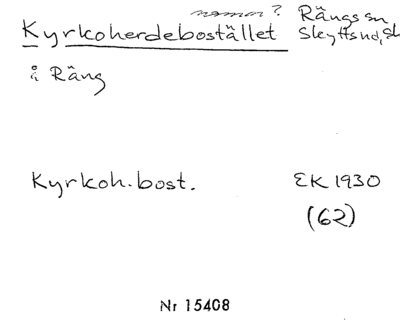 namn? Rängs sn
Kyrkoherdebostället Skytts hd, Sk
å Räng
Kyrkoh.bost. EK 1930
(62)
Nr 15408